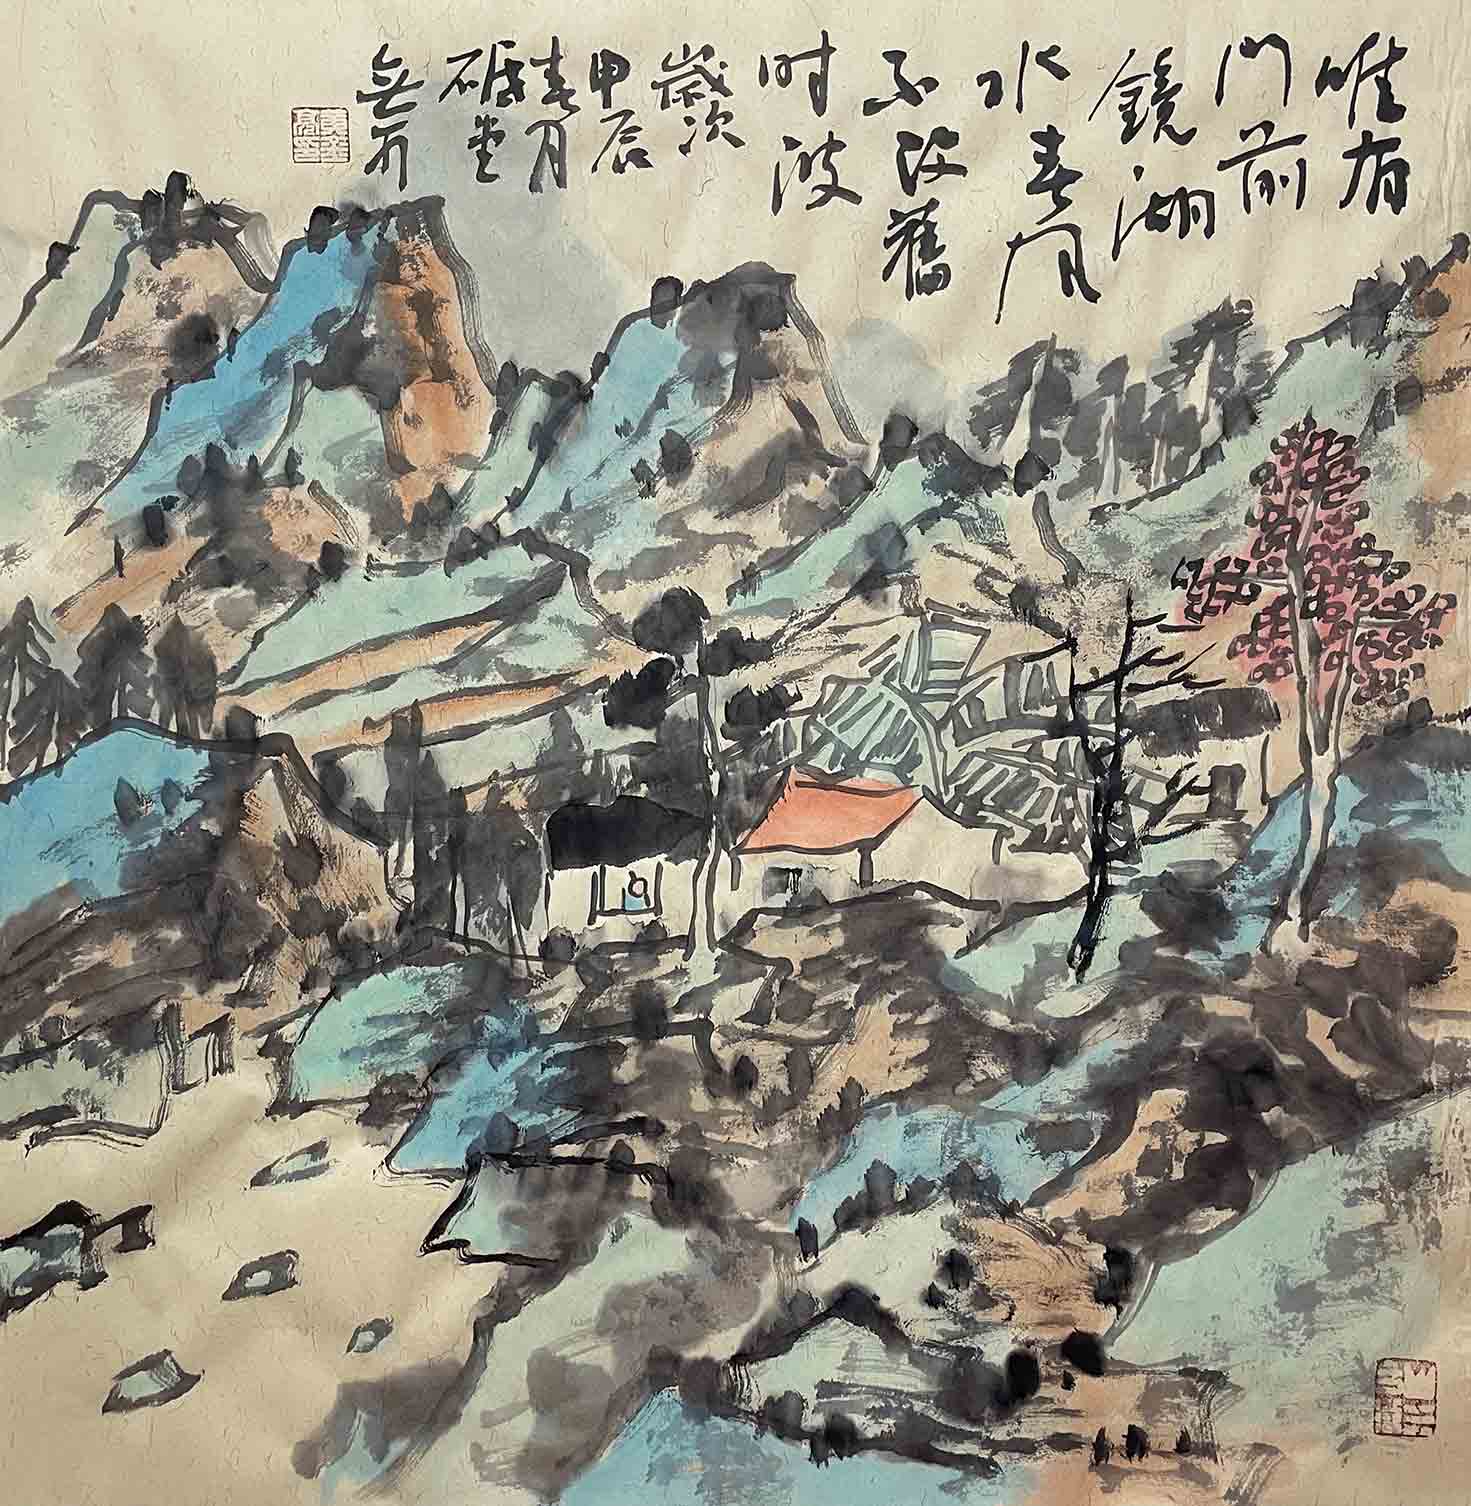 唯有
门前
镜湖
水春风
不改旧
时波
岁次
甲辰
春月
砥堂